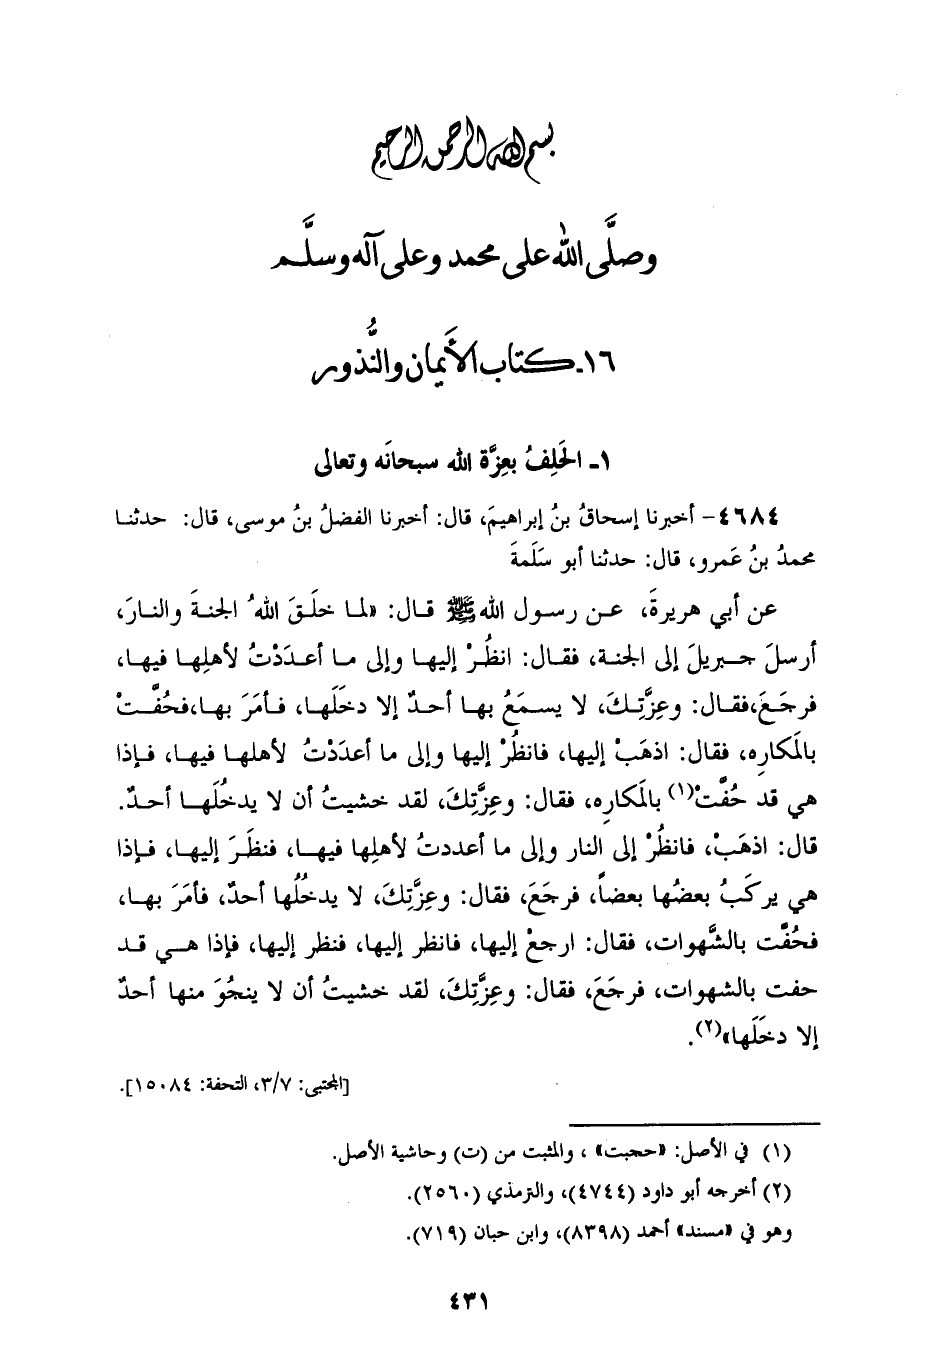 بسم الله الرحمن الرحيم
وصلَّى الله على محمد وعلى آله وسلَّم
١٦ـ كتاب الأَيمان والنُّذور
١ـ الحَلِفُ بعِزَّة الله سبحانَه وتعالى
٤٦٨٤ – أخبرنا إسحاقُ بنُ إبراهيمَ، قال: أخبرنا الفضلُ بنُ موسى، قال: حدثنا
محمدُ بنُ عَمرو، قال: حدثنا أبو سَلَمةَ
عن أبي هريرةَ، عن رسول الله ﷺ قال: «لما خلَقَ اللهُ الجنةَ والنارَ،
أرسلَ جبريلَ إلى الجنة، فقال: انظُرْ إليها وإلى ما أعدَدْتُ لأهلِها فيها،
فرجَعَ،فقال: وعِزَّتِكَ، لا يسمَعُ بها أحدٌ إلا دخَلَها، فأمَرَ بها،فحُفَّتْ
بالمَكارِه، فقال: اذهَبْ إليها، فانظُرْ إليها وإلى ما أعدَدْتُ لأهلها فيها، فإذا
هي قد حُفَّتْ(١) بالمَكارِه، فقال: وعِزَّتِكَ، لقد خشيتُ أن لا يدخُلَها أحدٌ.
قال: اذهَبْ، فانظُرْ إلى النار وإلى ما أعددتُ لأهلِها فيها، فنظَرَ إليها، فإذا
هي يركَبُ بعضُها بعضاً، فرجَعَ، فقال: وعِزَّتِكَ، لا يدخُلُها أحدٌ، فأمَرَ بها،
فحُفَّت بالشَّهوات، فقال: ارجعْ إليها، فانظر إليها، فنظر إليها، فإذا هي قد
حفت بالشهوات، فرجَعَ، فقال: وعِزَّتِكَ، لقد خشيتُ أن لا ينجُوَ منها أحدٌ
إلا دخَلَها»(٢).
[المجتبى: ٣/٧، التحفة: ١٥٠٨٤].
(١) في الأصل: «حجبت» ، والمثبت من (ت) وحاشية الأصل.
(٢) أخرجه أبو داود (٤٧٤٤)، والترمذي (٢٥٦٠).
وهو في «مسند» أحمد (٨٣٩٨)، وابن حبان (٧١٩).
٤٣١